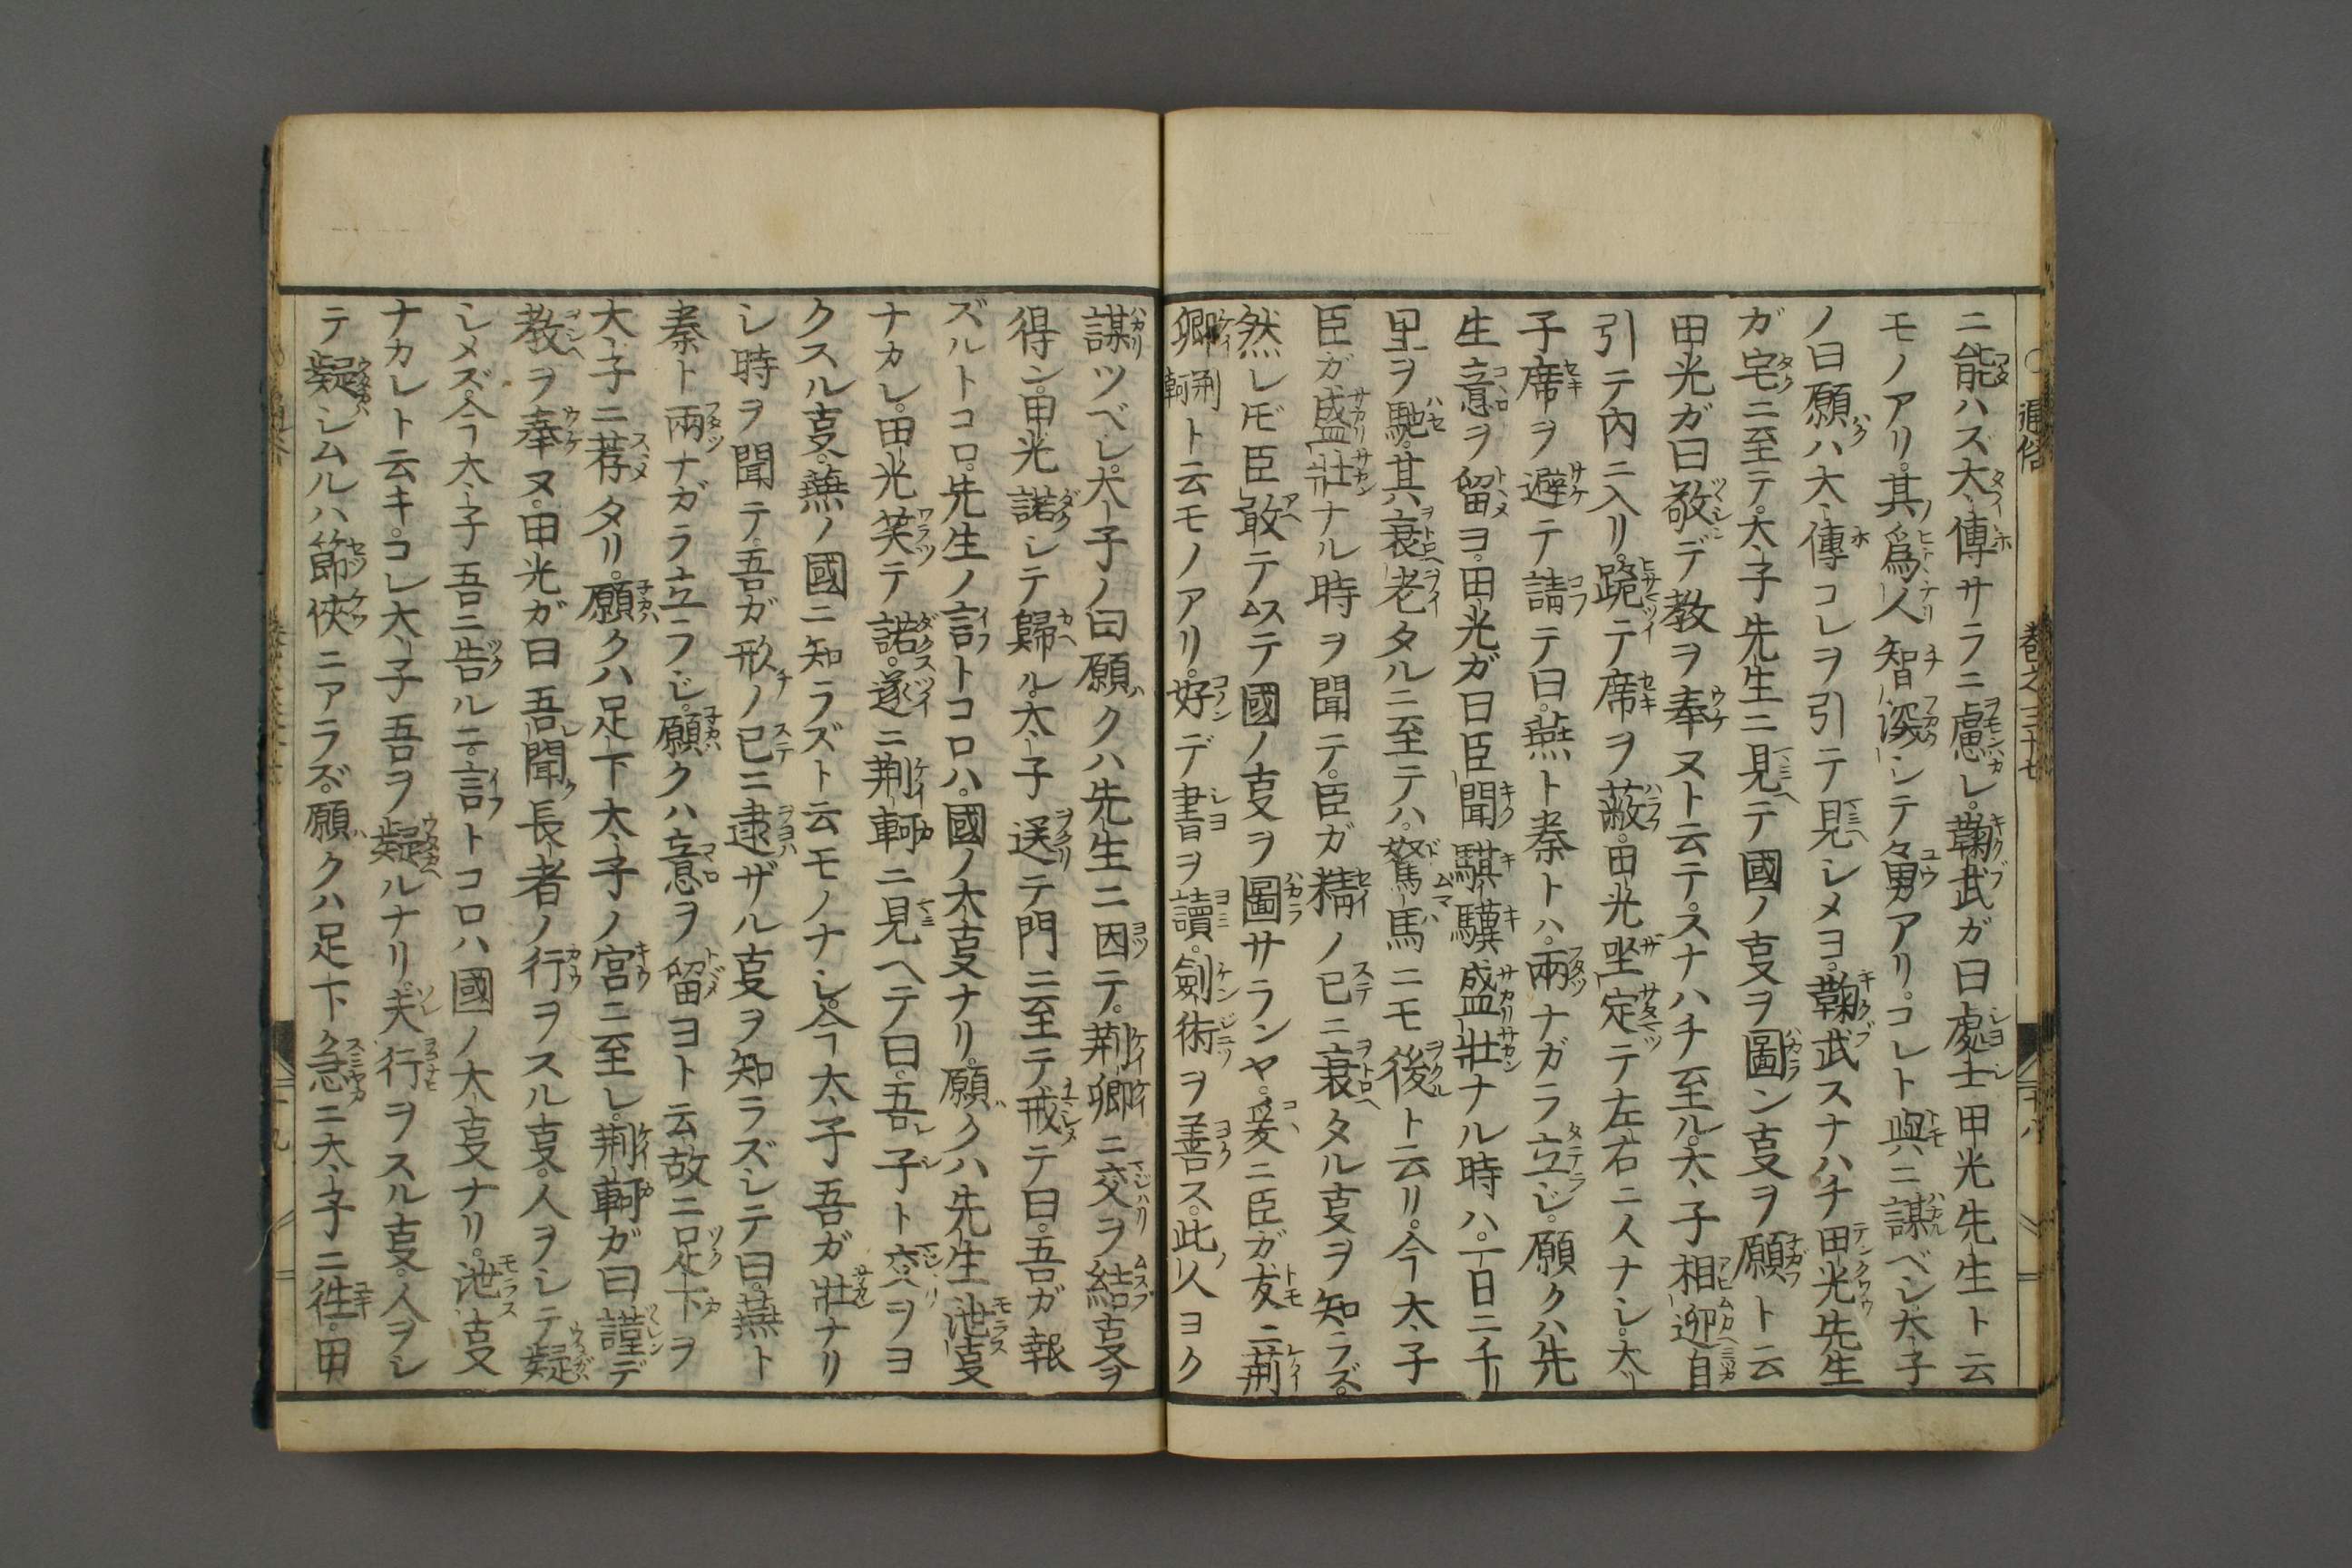 通俗 巻之三十七
ニ能ハズ大傅サラニ慮レ。鞠武ガ曰處士田光先生ト云
モノアリ。其爲人智深シテ勇アリ。コレト與ニ謀ベシ。太子
ノ曰願ハ大傅コレヲ引テ見シメヨ。鞠武スナハチ田光先生
ガ宅ニ至テ。太子先生ニ見テ國ノ叓ヲ圖ン叓ヲ願ト云
田光ガ曰敬デ教ヲ奉ヌト云テ。スナハチ至ル。太子相迎自
引テ内ニ入リ。跪テ席ヲ蔽。田光坐定テ左右ニ人ナシ。太
子席ヲ避テ請テ曰。燕ト秦トハ。兩ナガラ立じ。願クハ先
生意ヲ留ヨ。田光ガ曰臣聞騏驥盛壯ナル時ハ。一日ニ千
里ヲ馳。其衰老タルニ至テハ。駑馬ニモ後ト云リ。今太子
臣ガ盛壯ナル時ヲ聞テ。臣ガ精ノ已ニ衰タル叓ヲ知ラズ。
然レ𪜈臣敢テ以テ國ノ叓ヲ圖サランヤ。爰ニ臣ガ友ニ荊
卿荊軻ト云モノアリ。好デ書ヲ讀。劍術ヲ善ス。此人ヨク
謀ツベレ。太子ノ曰願クハ先生ニ因テ。荊卿ニ交ヲ結叓ヲ
得ン。田光諾レテ歸ル。太子送テ門ニ至テ戒テ曰。吾ガ報
ズルトコロ。先生ノ言トコロハ。國ノ大叓ナリ。願クハ先生泄叓
ナカレ。田光笑テ諾。遂ニ荊軻ニ見ヘテ曰。吾子ト交ヲヨ
クスル叓。燕ノ國ニ知ラズト云モノナシ。今太子吾ガ壯ナリ
シ時ヲ聞テ。吾ガ形ノ已ニ逮ザル叓ヲ知ラズレテ曰。燕ト
秦ト兩ナガラ立ラじ。願クハ意ヲ留ヨト云。故ニ足下ヲ
太子ニ荐タリ。願クハ足下太子ノ宮ニ至レ。荊軻ガ曰謹デ
教ヲ奉ヌ。田光ガ曰吾聞長者ノ行ヲスル叓。人ヲシテ疑
シメズ。今太子吾ニ告ルニ。言トコロハ國ノ大叓ナリ。泄叓
ナカレト云キ。コレ太子吾ヲ疑ルナリ。夫行ヲスル叓。人ヲシ
テ疑シムルハ節俠ニアラズ。願クハ足下急ニ太子ニ徃。田